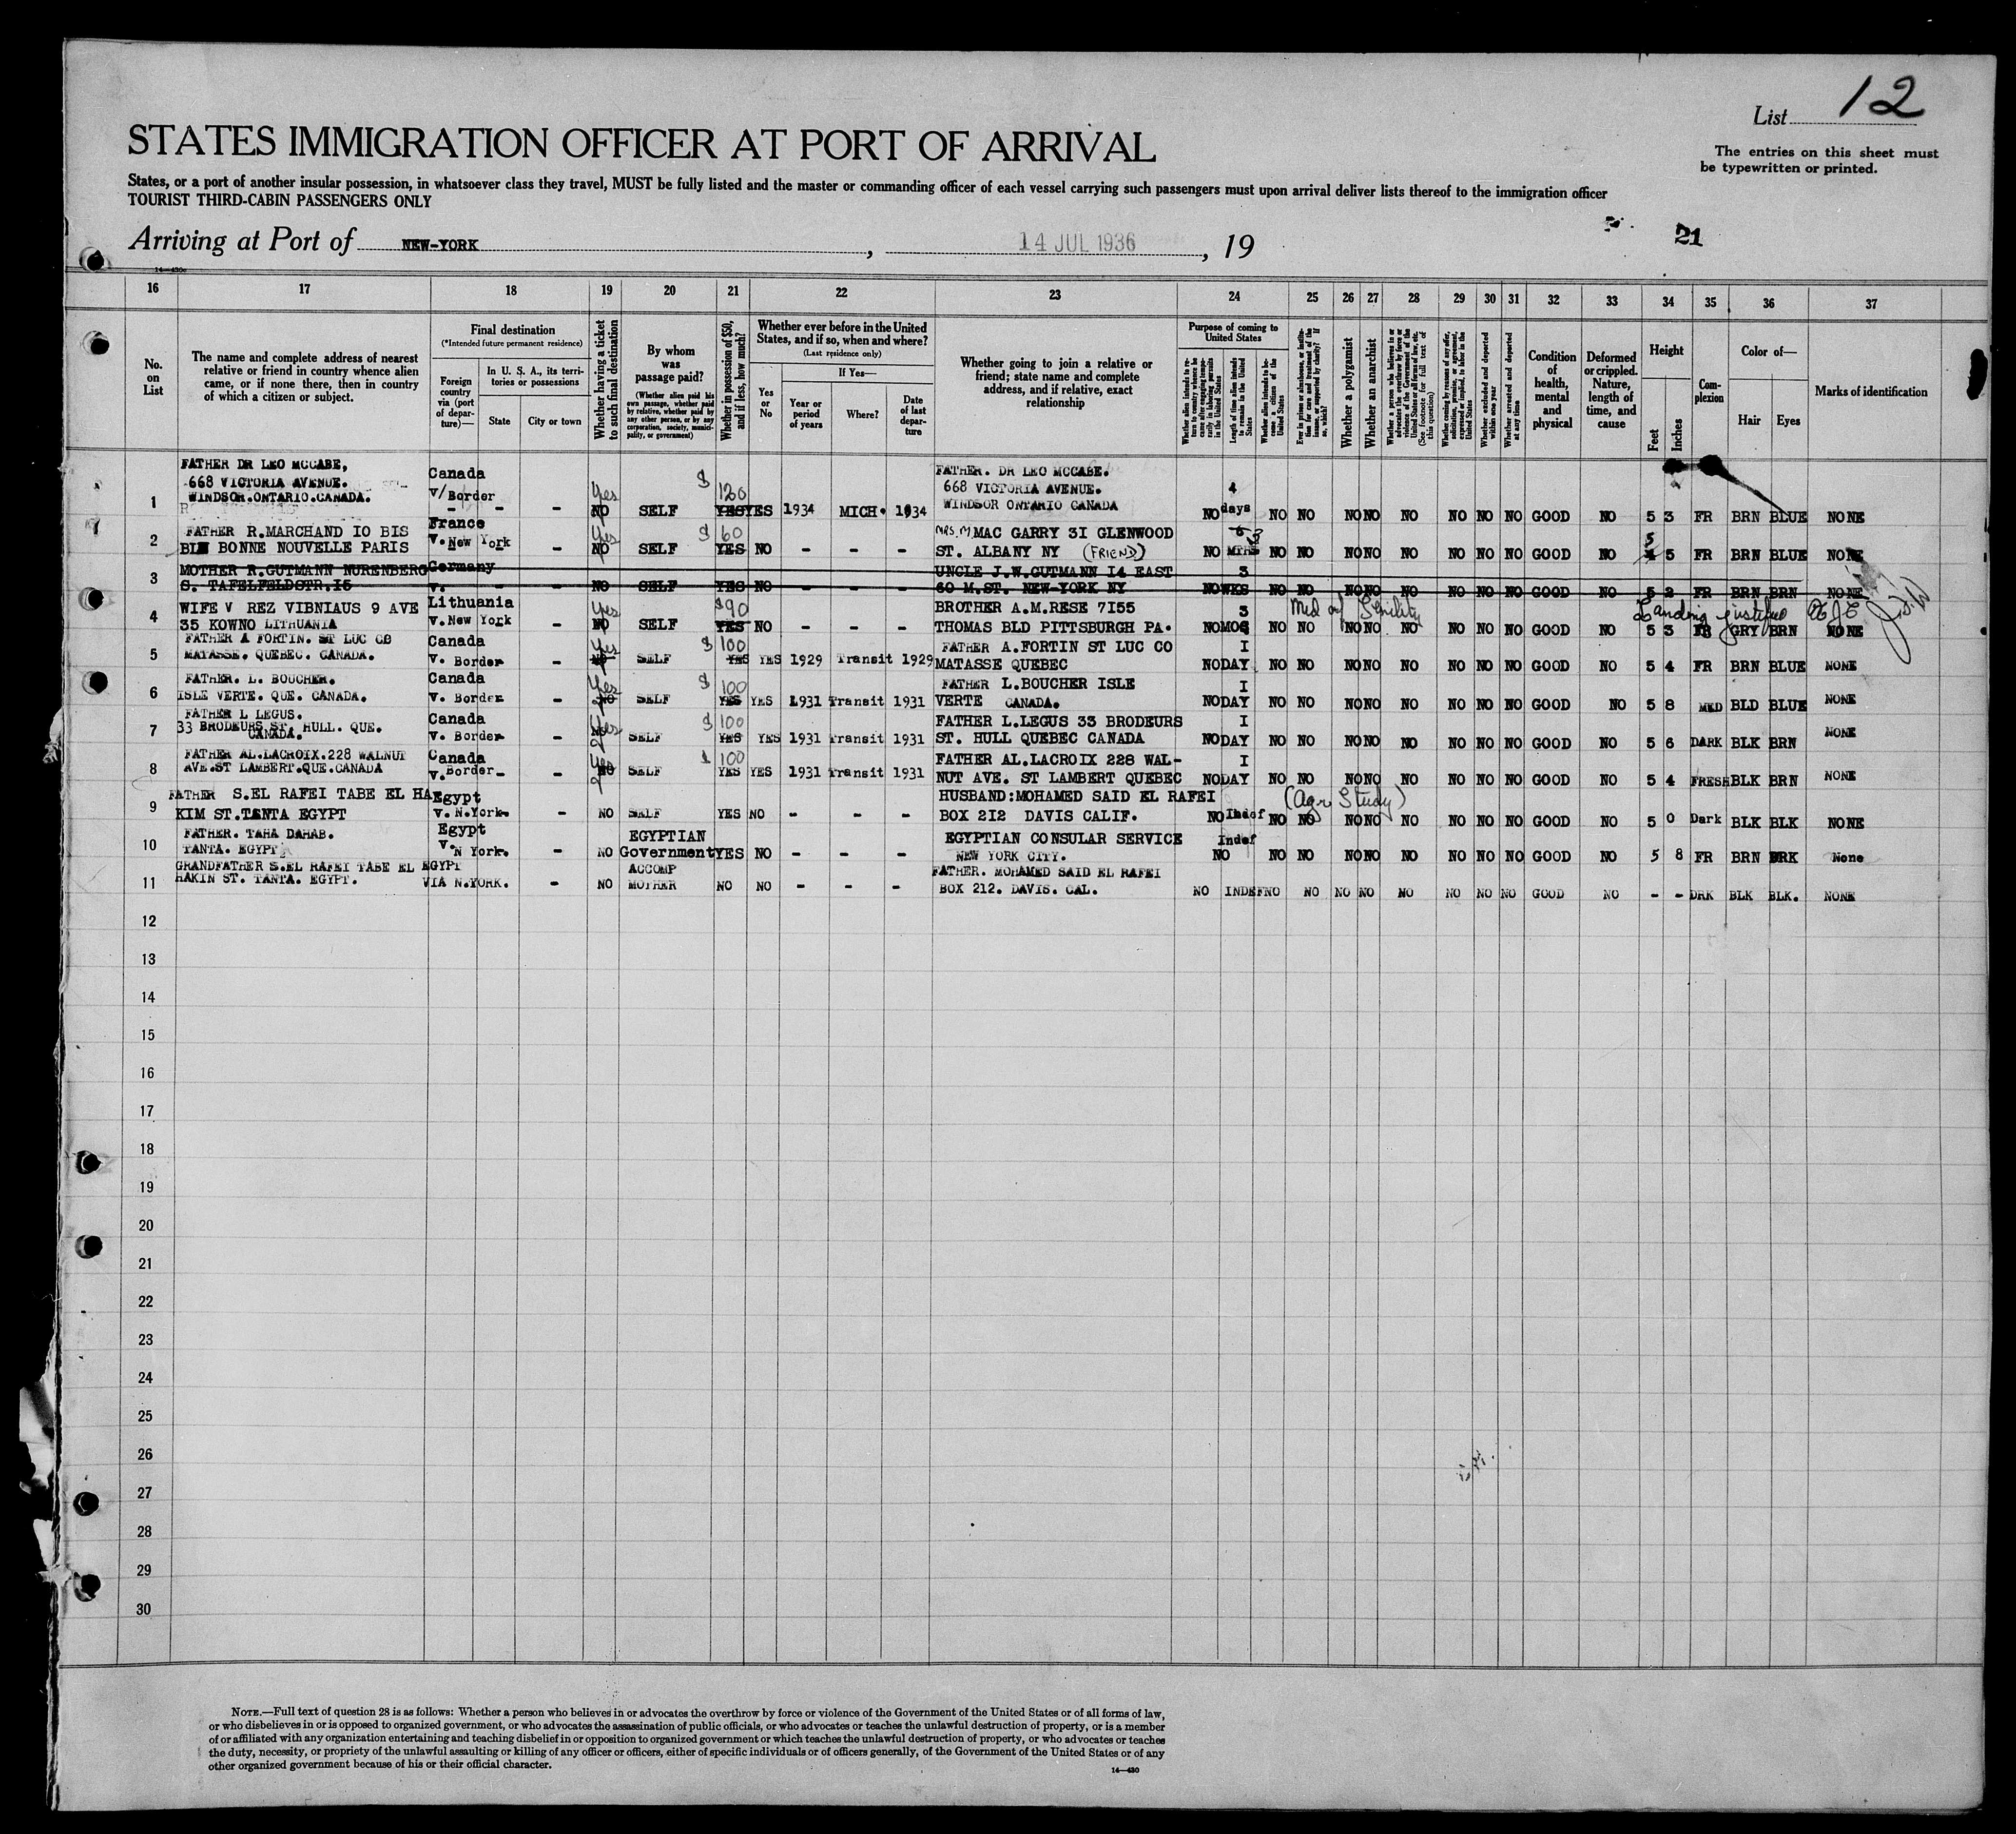 List 12
The entries on this sheet must
be typewritten or printed.
STATES IMMIGRATION OFFICER AT PORT OF ARRIVAL
States, or a port of another insular possession, in whatsoever class they travel, MUST be fully listed and the master or commanding officer of each vessel carrying such passengers must upon arrival deliver lists thereof to the immigration officer
TOURIST THIRD-CABIN PASSENGERS ONLY
Arriving at Port of NEW-YORK, 14 JUL 1936, 19
21
14—430
16 17 18 19 20 21 22 23 24 25 26 27 28 29 30 31 32 33 34 35 36 37
No. on List
The name and complete address of nearest relative or friend in country whence alien came, or if none there, then in country of which a citizen or subject.
Final destination
(*Intended future permanent residence)
Foreign country via (port of departure)—
In U. S. A., its territories or possessions
State
City or town
Whether having a ticket to such final destination
By whom was passage paid?
(Whether alien paid his own passage, whether paid by relative, whether paid by any other person, or by any corporation, society, municipality, or government)
Whether in possession of $50, and if less, how much?
Whether ever before in the United States, and if so, when and where?
(Last residence only)
Yes or No
If Yes—
Year or period of years
Where?
Date of last departure
Whether going to join a relative or friend; state name and complete address, and if relative, exact relationship
Purpose of coming to United States
Whether alien intends to return to country whence he came after engaging temporarily in laboring pursuits in the United States
Length of time alien intends to remain in the United States
Whether alien intends to become a citizen of the United States
Ever in prison or almshouse, or institution for care and treatment of the insane, or supported by charity? If so, which?
Whether a polygamist
Whether an anarchist
Whether a person who believes in or advocates the overthrow by force or violence of the Government of the United States or all forms of law, etc. (See footnote for full text of this question)
Whether coming by reason of any offer, solicitation, promise, or agreement, expressed or implied, to labor in the United States
Whether excluded and deported within one year
Whether arrested and deported at any time
Condition of health, mental and physical
Deformed or crippled. Nature, length of time, and cause
Height
Feet
Inches
Complexion
Color of—
Hair
Eyes
Marks of identification
FATHER DR LEO MCCABE, Canada $ FATHER. DR LEO MCCABE.
668 VICTORIA AVENUE. v/Border Yes 120 668 VICTORIA AVENUE. 4
1 WINDSOR.ONTARIO.CANADA. - - - NO SELF YES YES 1934 MICH. 1934 WINDSOR ONTARIO CANADA NO days NO NO NO NO NO NO NO NO GOOD NO 5 3 FR BRN BLUE NONE
FATHER R.MARCHAND IO BIS France Yes $ 60 MRS. MAC GARRY 3I GLENWOOD 3 5
2 BONNE NOUVELLE PARIS v.New York - NO SELF YES NO - - - ST. ALBANY NY (FRIEND) NO NO NO NO NO NO NO NO NO GOOD NO 4 5 FR BRN BLUE NONE
MOTHER R.GUTMANN NURENBERG Germany UNCLE J.W.GUTMANN I4 EAST 3
3 S. TAFELFELDSTR.I5 v. - - NO SELF YES NO - - - 60 M.ST. NEW-YORK NY NO WKS NO NO NO NO NO NO NO NO GOOD NO 5 2 FR BRN BRN NONE
WIFE V REZ VIBNIAUS 9 AVE Lithuania Yes $90 BROTHER A.M.RESE 7I55 3 Senility Landing justified
4 35 KOWNO LITHUANIA v.New York - NO SELF YES NO - - - THOMAS BLD PITTSBURGH PA. NO MOS NO NO NO NO NO NO NO NO GOOD NO 5 3 FR GRY BRN NONE
FATHER A FORTIN. ST LUC CO Canada Yes $ 100 FATHER A.FORTIN ST LUC CO I
5 MATASSE. QUEBEC. CANADA. v. Border - NO SELF YES YES 1929 Transit 1929 MATASSE QUEBEC NO DAY NO NO NO NO NO NO NO NO GOOD NO 5 4 FR BRN BLUE NONE
FATHER. L. BOUCHER. Canada Yes $ 100 FATHER L.BOUCHER ISLE I
6 ISLE VERTE. QUE. CANADA. v. Border - NO SELF YES YES 1931 Transit 1931 VERTE CANADA. NO DAY NO NO NO NO NO NO NO NO GOOD NO 5 8 MED BLD BLUE NONE
FATHER L LEGUS. Canada Yes $ 100 FATHER L.LEGUS 33 BRODEURS I
7 33 BRODEURS ST. HULL. QUE. CANADA. v. Border - NO SELF YES YES 1931 Transit 1931 ST. HULL QUEBEC CANADA NO DAY NO NO NO NO NO NO NO NO GOOD NO 5 6 DARK BLK BRN NONE
FATHER AL.LACROIX.228 WALNUT Canada Yes $ 100 FATHER AL.LACROIX 228 WAL- I
8 AVE.ST LAMBERT.QUE.CANADA v.Border - NO SELF YES YES 1931 Transit 1931 NUT AVE. ST LAMBERT QUEBEC NO DAY NO NO NO NO NO NO NO NO GOOD NO 5 4 FRESH BLK BRN NONE
FATHER S.EL RAFEI TABE EL HA Egypt HUSBAND:MOHAMED SAID EL RAFEI (Agr Study)
9 KIM ST.TANTA EGYPT v. N.York- - NO SELF YES NO - - - BOX 2I2 DAVIS CALIF. NO Indef NO NO NO NO NO NO NO NO GOOD NO 5 0 Dark BLK BLK NONE
FATHER. TAHA DAHAB. Egypt EGYPTIAN EGYPTIAN CONSULAR SERVICE Indef
10 TANTA. EGYPT v. N York. - NO Government YES NO - - - NEW YORK CITY. NO NO NO NO NO NO NO NO NO GOOD NO 5 8 FR BRN BRK None
GRANDFATHER S.EL RAFEI TABE EL EGYPT ACCOMP FATHER. MOHAMED SAID EL RAFEI
11 HAKIN ST. TANTA. EGYPT. VIA N.YORK. - NO MOTHER NO NO - - - BOX 212. DAVIS. CAL. NO INDEF NO NO NO NO NO NO NO NO GOOD NO - - DRK BLK BLK. NONE
12
13
14
15
16
17
18
19
20
21
22
23
24
25
26
27
28
29
30
NOTE.—Full text of question 28 is as follows: Whether a person who believes in or advocates the overthrow by force or violence of the Government of the United States or of all forms of law,
or who disbelieves in or is opposed to organized government, or who advocates the assassination of public officials, or who advocates or teaches the unlawful destruction of property, or is a member
of or affiliated with any organization entertaining and teaching disbelief in or opposition to organized government or which teaches the unlawful destruction of property, or who advocates or teaches
the duty, necessity, or propriety of the unlawful assaulting or killing of any officer or officers, either of specific individuals or of officers generally, of the Government of the United States or of any
other organized government because of his or their official character.
14—430